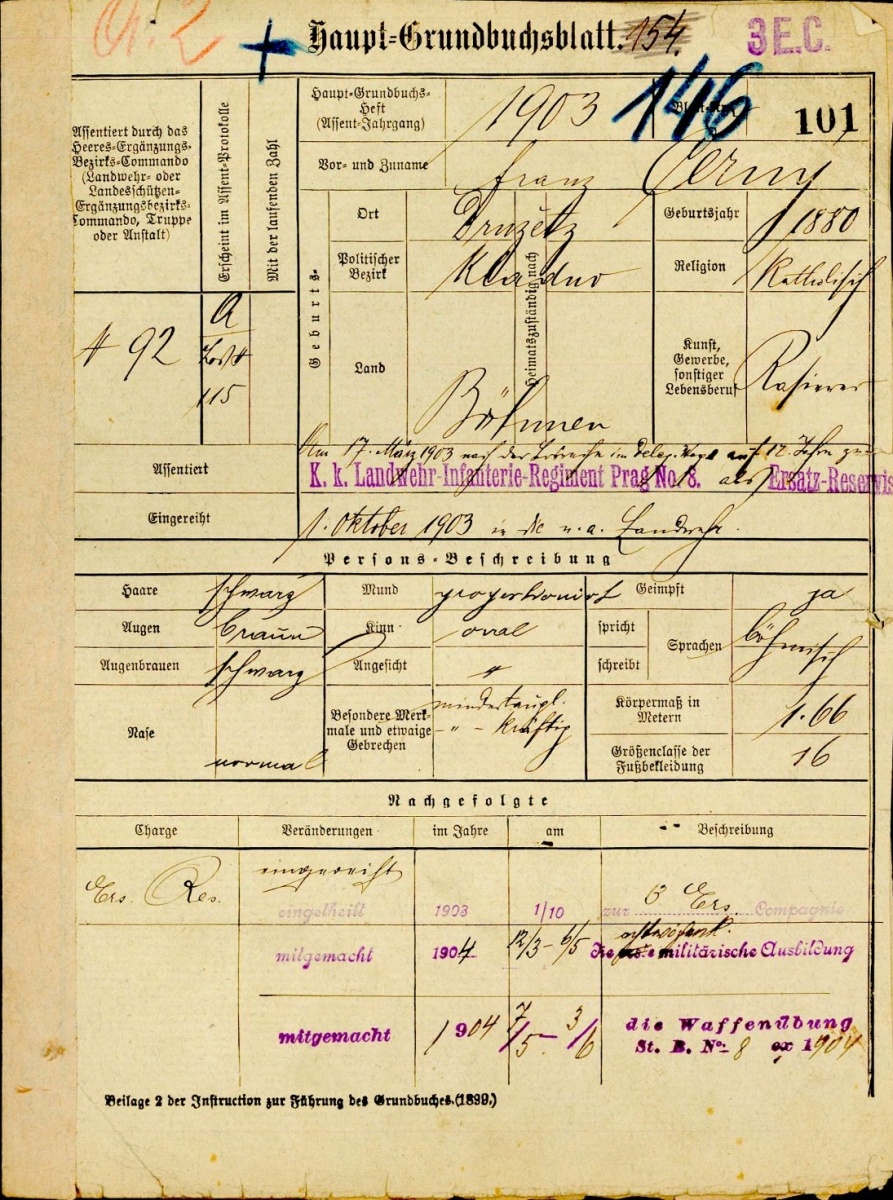 Haupt-Grundbuchsblatt. 154.
3 E.C.
Haupt-Grundbuchs-
Heft
(Assent-Jahrgang)
1903
146
101
Assentiert durch das
Heeres-Ergänzungs-
Bezirks-Commando
(Landwehr- oder
Landesschützen-
Ergänzungsbezirks-
Commando, Truppe
oder Anstalt)
Erscheint im Assent-Protokolle
Mit der laufenden Zahl
Vor- und Zuname
Franz Černy
Geburts-
Ort
Druzetz
Geburtsjahr
1880
Politischer
Bezirk
Kladno
Heimatszuständig nach
Religion
Katholisch
92
A
115
Land
Böhmen
Kunst,
Gewerbe,
sonstiger
Lebensberuf
Rasierer
Assentiert
Am 17. März 1903 nach der Losreihe im auf 12 Jahre zum
K. k. Landwehr-Infanterie-Regiment Prag No. 8. als Ersatz-Reservis
Eingereiht
1. Oktober 1903 in die n. a. Landwehr.
Persons-Beschreibung
Haare
schwarz
Mund
proportionirt
Geimpft
ja
Augen
braun
Kinn
oval
spricht
schreibt
Sprachen
böhmisch
Augenbrauen
schwarz
Angesicht
"
Nase
normal
Besondere Merk-
male und etwaige
Gebrechen
mindertaugl.
- " - kräftig
Körpermaß in
Metern
1.66
Größenclasse der
Fußbekleidung
16
Nachgefolgte
Charge
Veränderungen
im Jahre
am
Beschreibung
Ers. Res.
eingereiht
eingetheilt
1903
1/10
zur 6 Ers. Compagnie
mitgemacht
1904
12/3 - 6/5
achtwöchentl.
die militärische Ausbildung
mitgemacht
1904
7/5 - 3/6
die Waffenübung
St. B. No: 8 ex 1904
Beilage 2 der Instruction zur Führung des Grundbuches. (1899.)